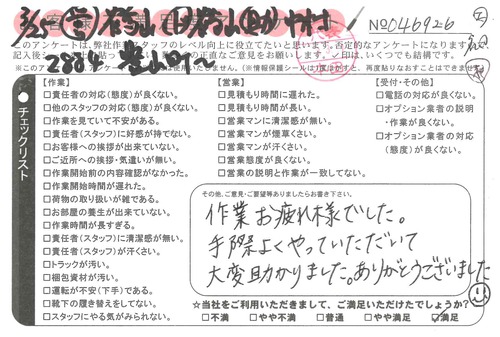 №046926
このアンケートは、弊社作業スタッフのレベル向上に役立てたいと思います。否定的なアンケートになりますが、
【作業】
□責任者の対応(態度)が良くない。
□他のスタッフの対応(態度)が良くない。
□作業を見ていて不安がある。
□責任者(スタッフ)に好感が持てない。
□お客様への挨拶が出来ていない。
□ご近所への挨拶・気遣いが無い。
□作業開始前の内容確認がなかった。
□作業開始時間が遅れた。
□荷物の取り扱いが雑である。
□お部屋の養生が出来ていない。
□作業時間が長すぎる。
□責任者(スタッフ)に清潔感が無い。
□責任者(スタッフ)が汗くさい。
□トラックが汚い。
□梱包資材が汚い。
□運転が不安(下手)である。
□靴下の履き替えをしてない。
□スタッフにやる気がみられない。
【営業】
□見積もり時間に遅れた。
□見積もり時間が長い。
□営業マンに清潔感が無い。
□営業マンが煙草くさい。
□営業マンが汗くさい。
□営業態度が良くない。
□営業の説明と作業が一致してない。
【受付・その他】
□電話の対応が良くない。
□オプション業者の説明
・作業が良くない。
□オプション業者の対応
(態度)が良くない。
チェックリスト
その他、ご意見・ご要望等ありましたらお書き下さい。
作業お疲れ様でした。
手際よくやっていただいて
大変助かりました。ありがとうございました
☆当社をご利用いただきまして、ご満足いただけたでしょうか?
□不満 □やや不満 □普通 □やや満足 ☑満足